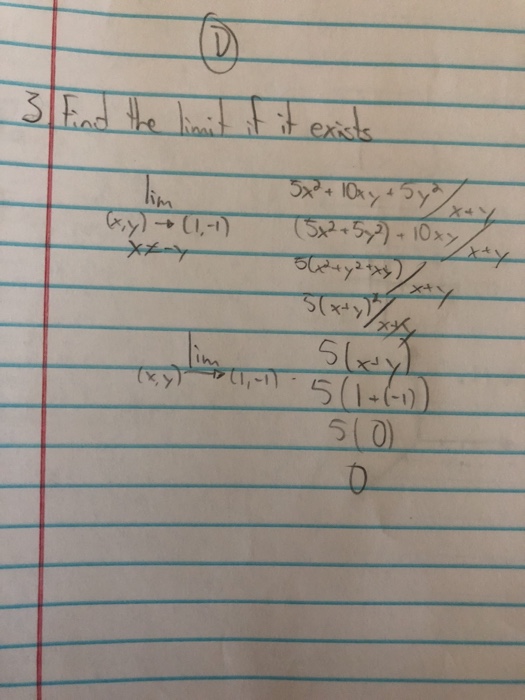 D
3 Find the limit if it exists
lim (x,y) → (1,-1) x ≠ -y 5x² + 10xy + 5y² / x+y
(5x² + 5y²) + 10xy / x+y
5(x² + y² + xy) / x+y
5(x+y)² / x+y
lim (x,y) → (1,-1) 5(x+y)
5(1+(-1))
5(0)
0